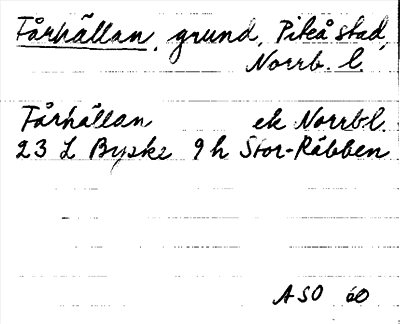 Fårhällan, grund, Piteå stad,
Norrb. l.
Fårhällan ek Norrb.l.
23 L Byske 9 h Stor-Räbben
ASO 60